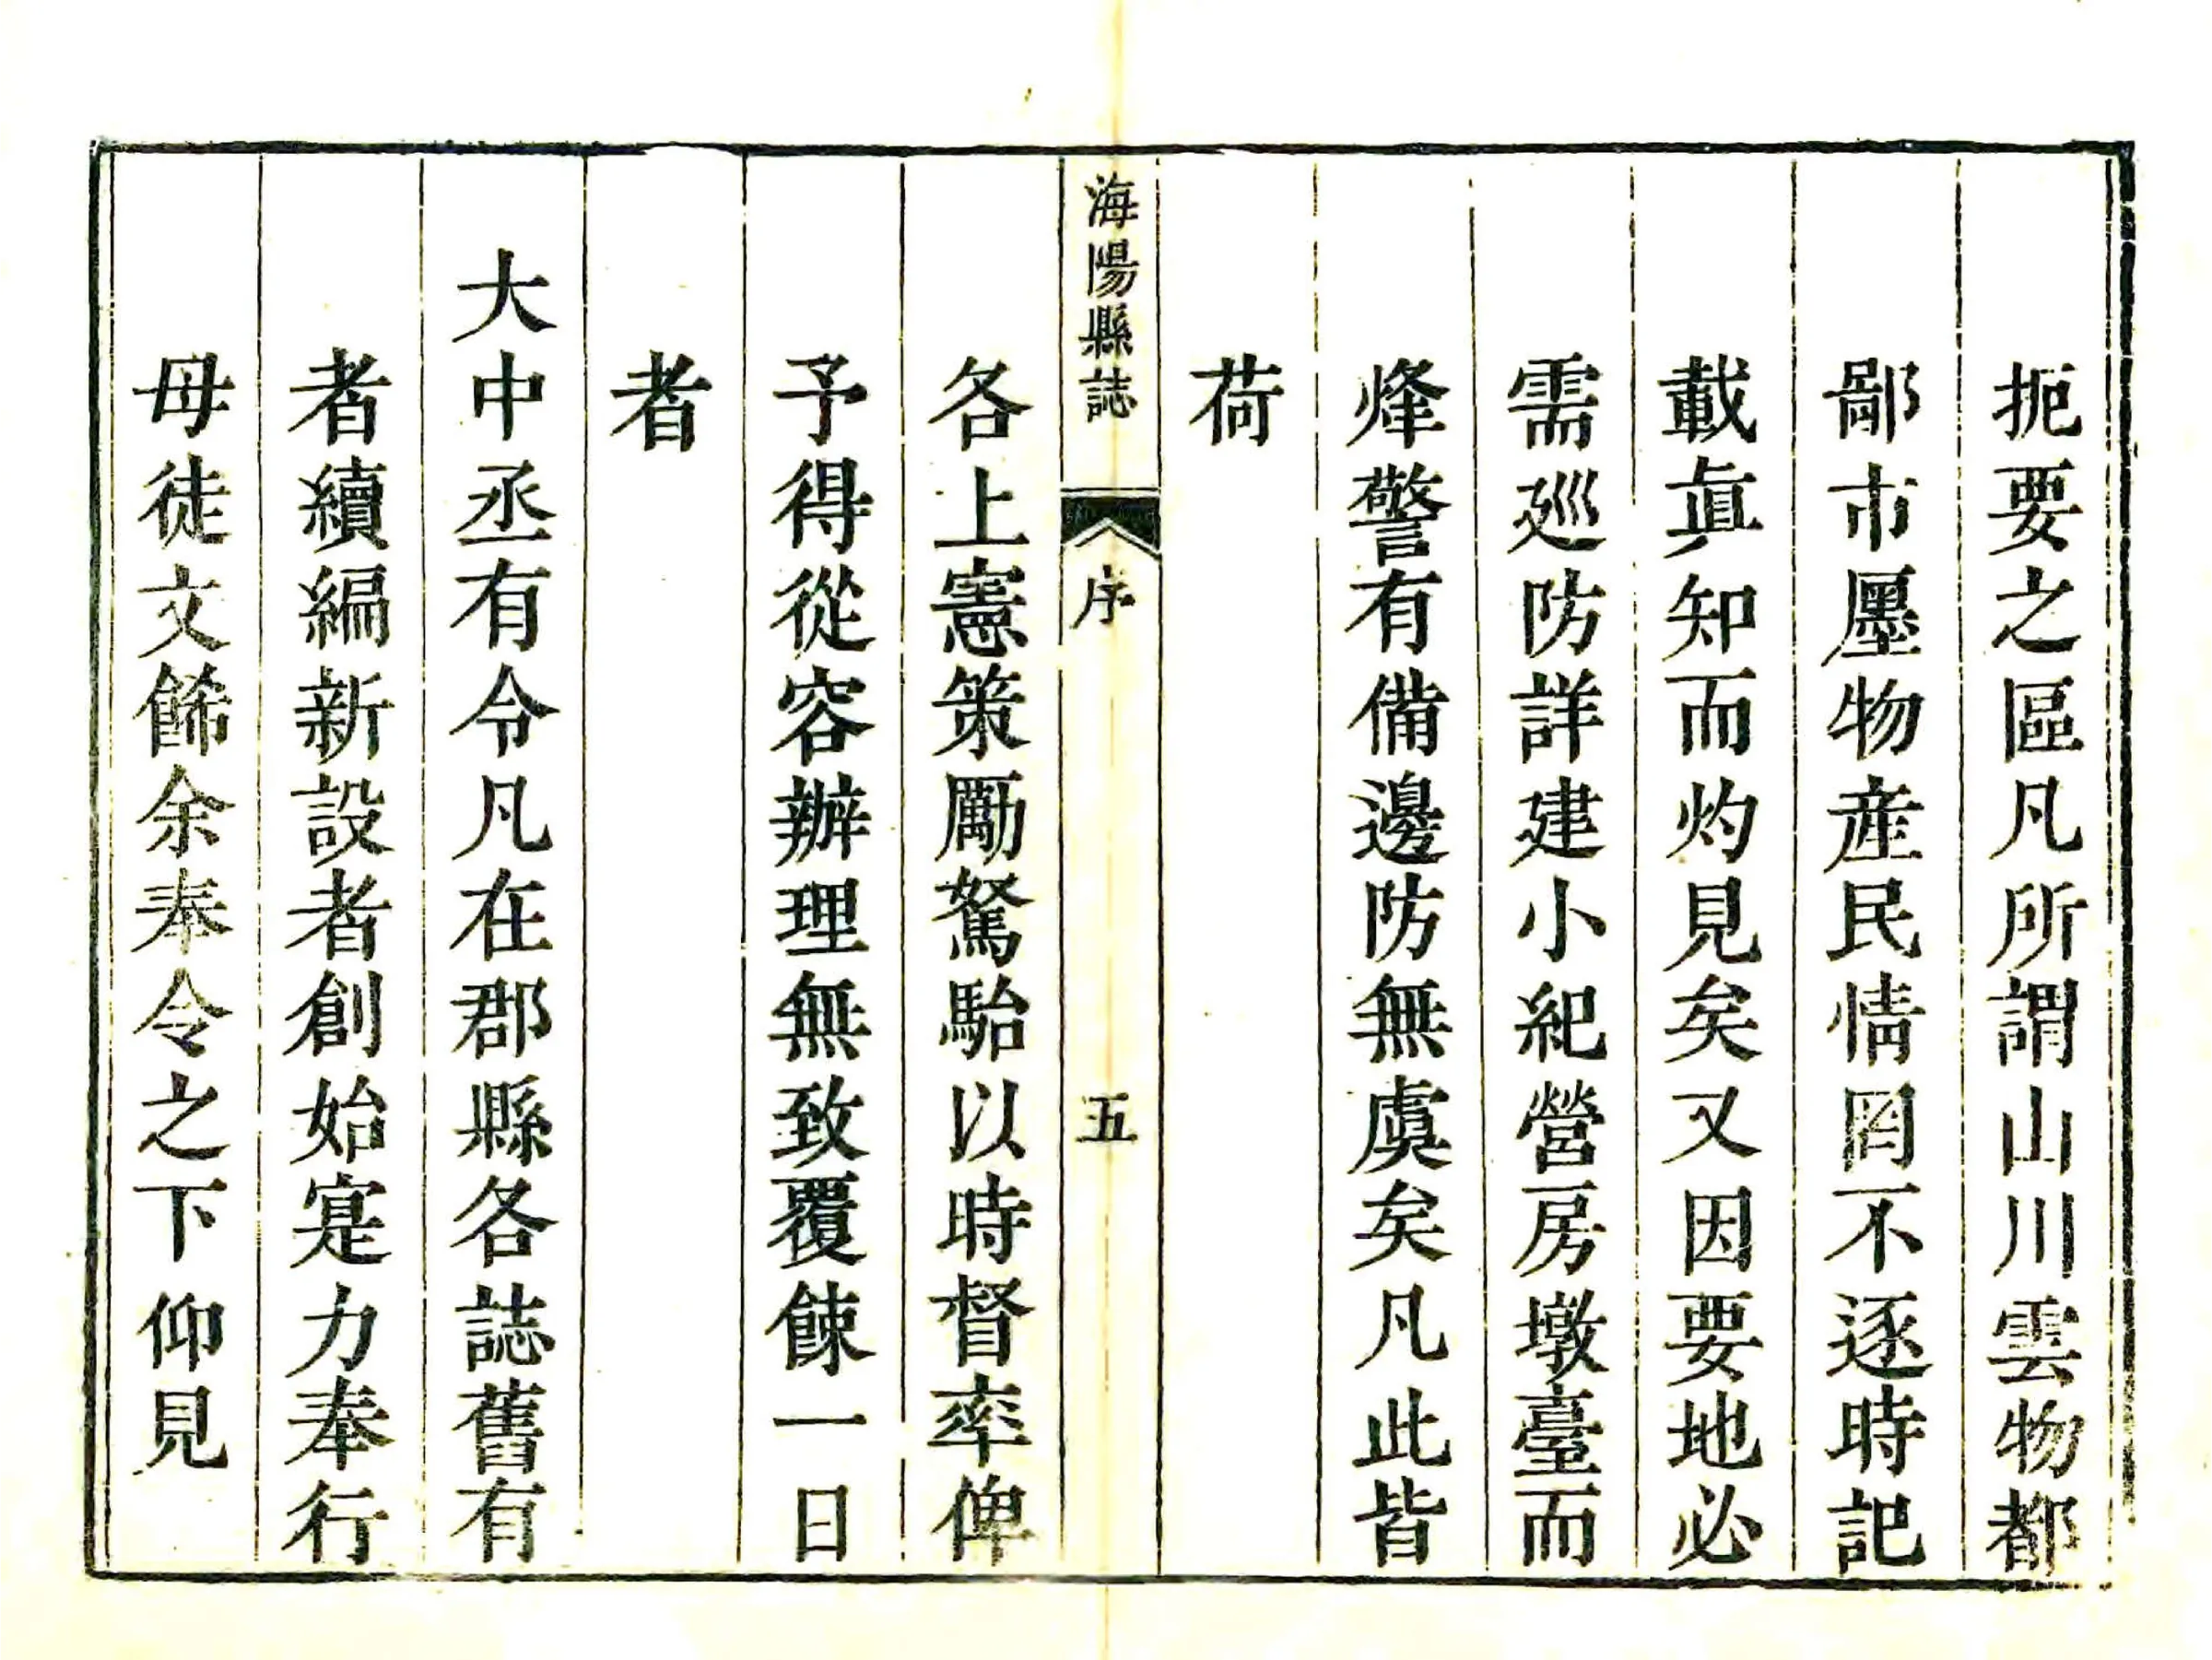 扼要之區凡所謂山川雲物都
鄙市廛物產民情罔不逐時記
載眞知而灼見矣又因要地必
需廵防詳建小紀營房墩臺而
烽警有備邊防無虞矣凡此皆
荷
海陽縣誌
序
五
各上憲策勵駑駘以時督率俾
予得從容辦理無致覆餗一日
者
大中丞有令凡在郡縣各誌舊有
者續編新設者創始寔力奉行
毋徒文餙余奉令之下仰見